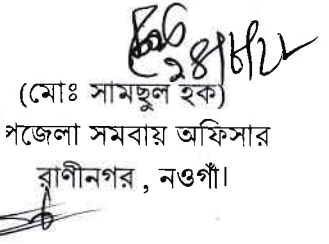 (মোঃ সামছুল হক)
পজেলা সমবায় অফিসার
রাণীনগর , নওগাঁ।